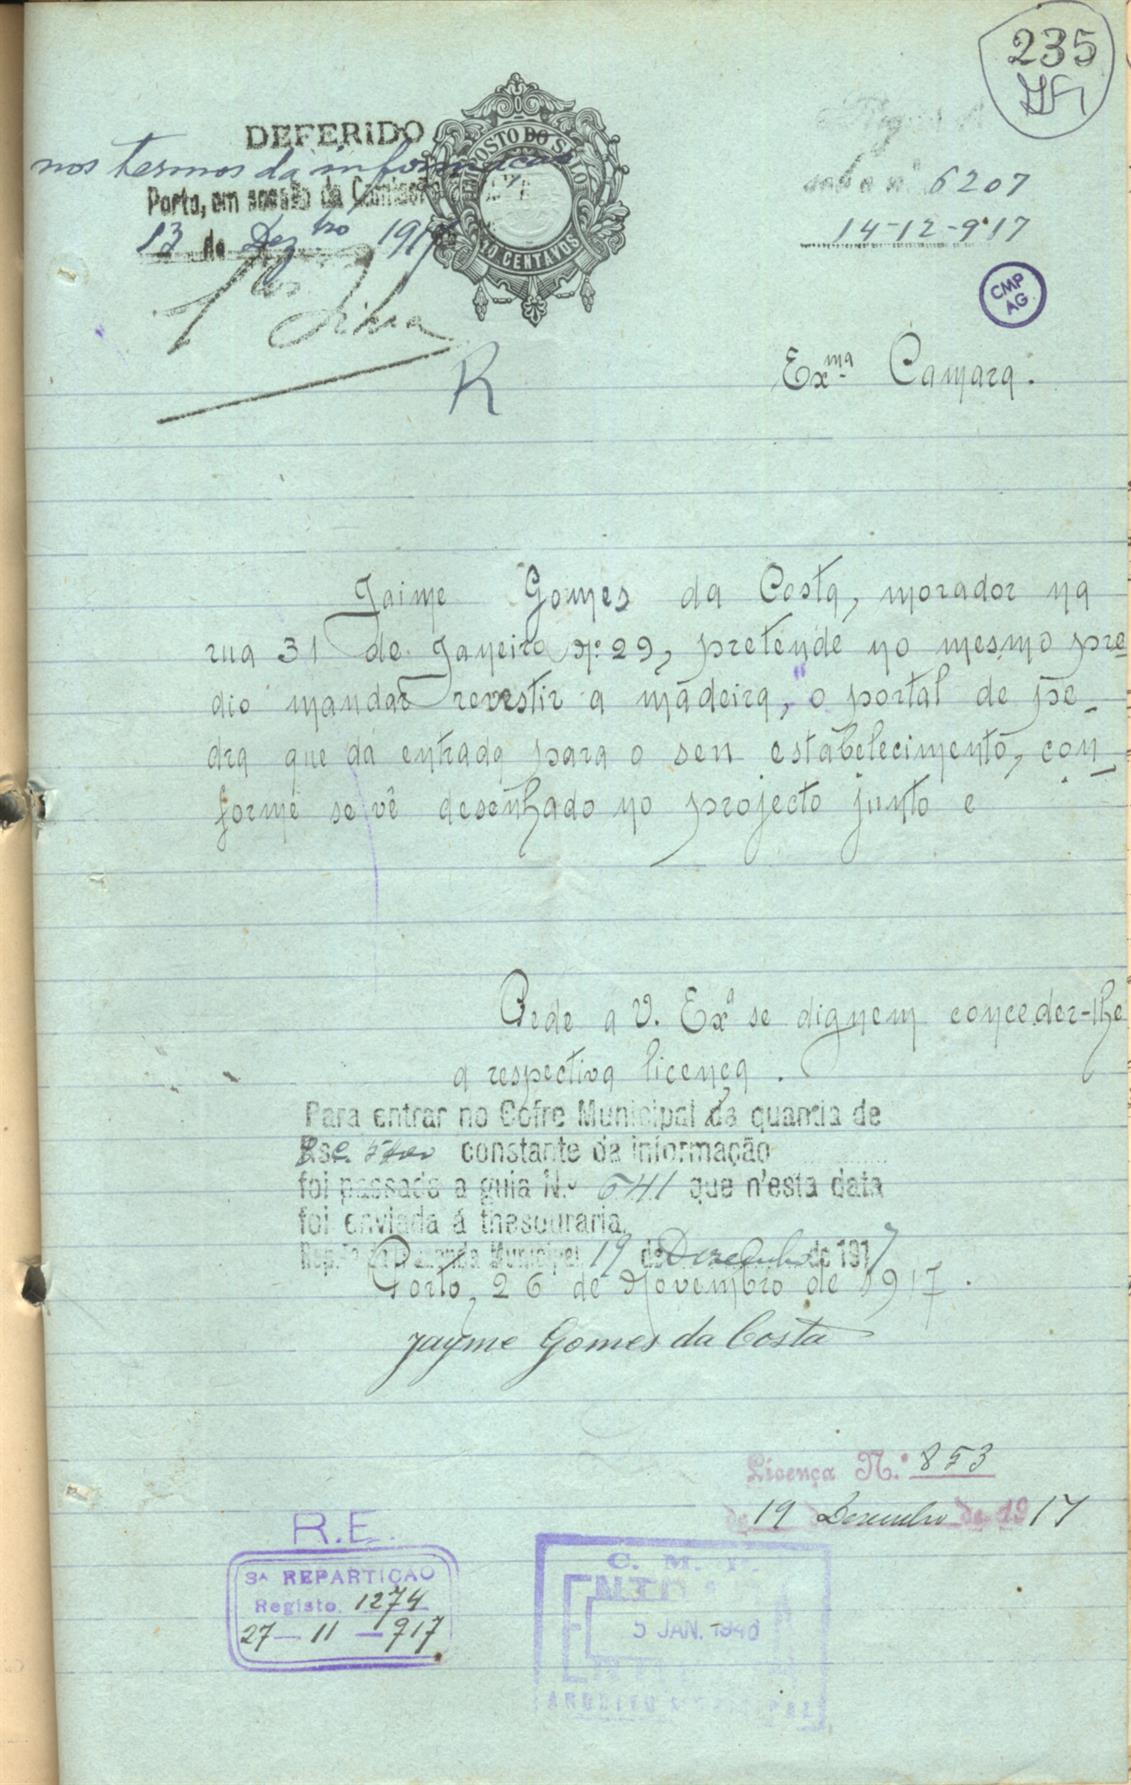 235
DEFERIDO
nos termos da informação
Porto, em sessão da Comissão
13 de Dez.bro 1917
Silva
IMPOSTO DO SELO
10 CENTAVOS
sob o nº 6207
14-12-917
CMP
AG
R
Ex.ma Camara.
Jaime Gomes da Costa, morador na
rua 31 de Janeiro Nº 29, pretende no mesmo pre-
dio mandar revestir a madeira, o portal de pe-
dra que dá entrada para o seu estabelecimento, con-
forme se vê desenhado no projecto junto e
Pede a V. Exª se dignem conceder-lhe
a respectiva licença.
Para entrar no Cofre Municipal da quantia de
constante da informação
foi passada a guia N.º 641 que n'esta data
foi enviada á thesouraria.
Municipal 19 de Dezembro de 1917
Porto, 26 de Novembro de 1917.
Jayme Gomes da Costa
Licença N.º 853
de 19 Dezembro de 1917
R.E.
3ª REPARTIÇÃO
Registo 1274
27-11-917
C. M. P.
5 JAN. 1940